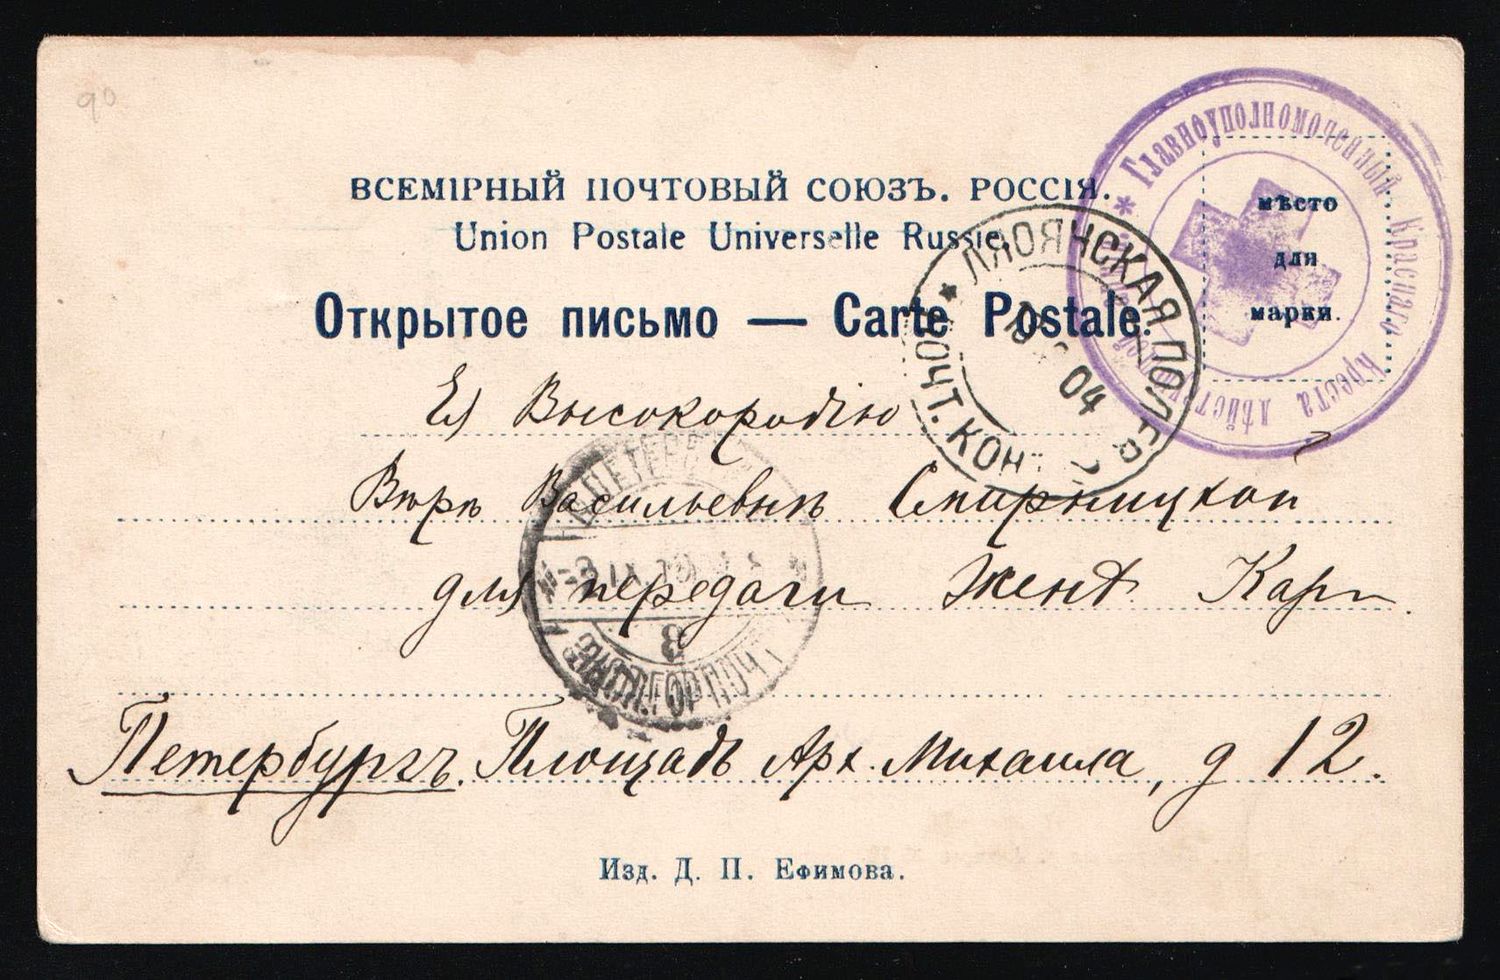 90
ВСЕМІРНЫЙ ПОЧТОВЫЙ СОЮЗЪ. РОССІЯ.
Union Postale Universelle Russie.
Открытое письмо — Carte Postale.
мѣсто
для
марки.
* Главноуполномоченный Краснаго Креста
* ЛЯОЯНСКАЯ ПОЛЕВ ПОЧТ. КОН
04
Ея Высокородію
Вѣрѣ Васильевнѣ Смирницкой
для передачи женѣ
Петербургъ. Площадь Арх. Михаила, д 12.
3
Изд. Д. П. Ефимова.